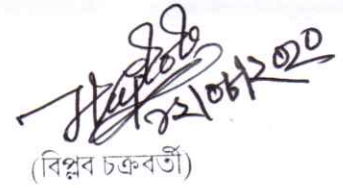 ১২/০৮/২০২০
(বিপ্লব চক্রবর্তী)